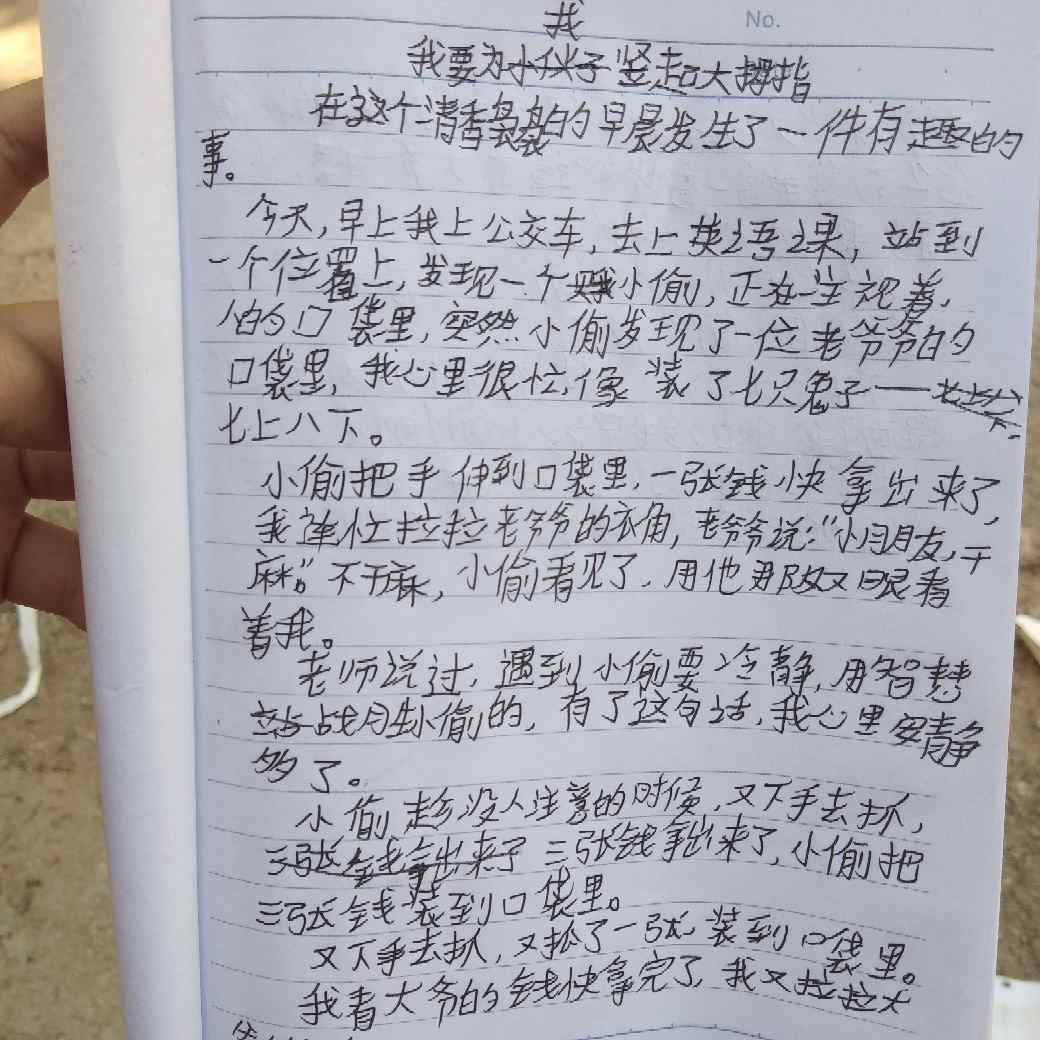 No.
我
我要为小伙子竖起大拇指
在这个清香袅袅的早晨发生了一件有趣的
事。
今天,早上我上公交车,去上英语课,站到
一个位置上,发现一个贼小偷,正在注视着,
人的口袋里,突然小偷发现了一位老爷爷的
口袋里,我心里很忙,像装了七只兔子——
七上八下。
小偷把手伸到口袋里,一张钱快拿出来了,
我连忙拉拉老爷爷的衣角,老爷爷说:“小朋友,干
麻。”不干麻,小偷看见了,用他那双眼看
着我。
老师说过,遇到小偷要冷静,用智慧
站战胜小偷的,有了这句话,我心里安静
多了。
小偷趁没人注意的时候,又下手去抓,
三张钱拿出来了三张钱拿出来了,小偷把
三张钱装到口袋里。
又下手去抓,又抓了一张,装到口袋里。
我看大爷的钱快拿完了,我又拉拉大